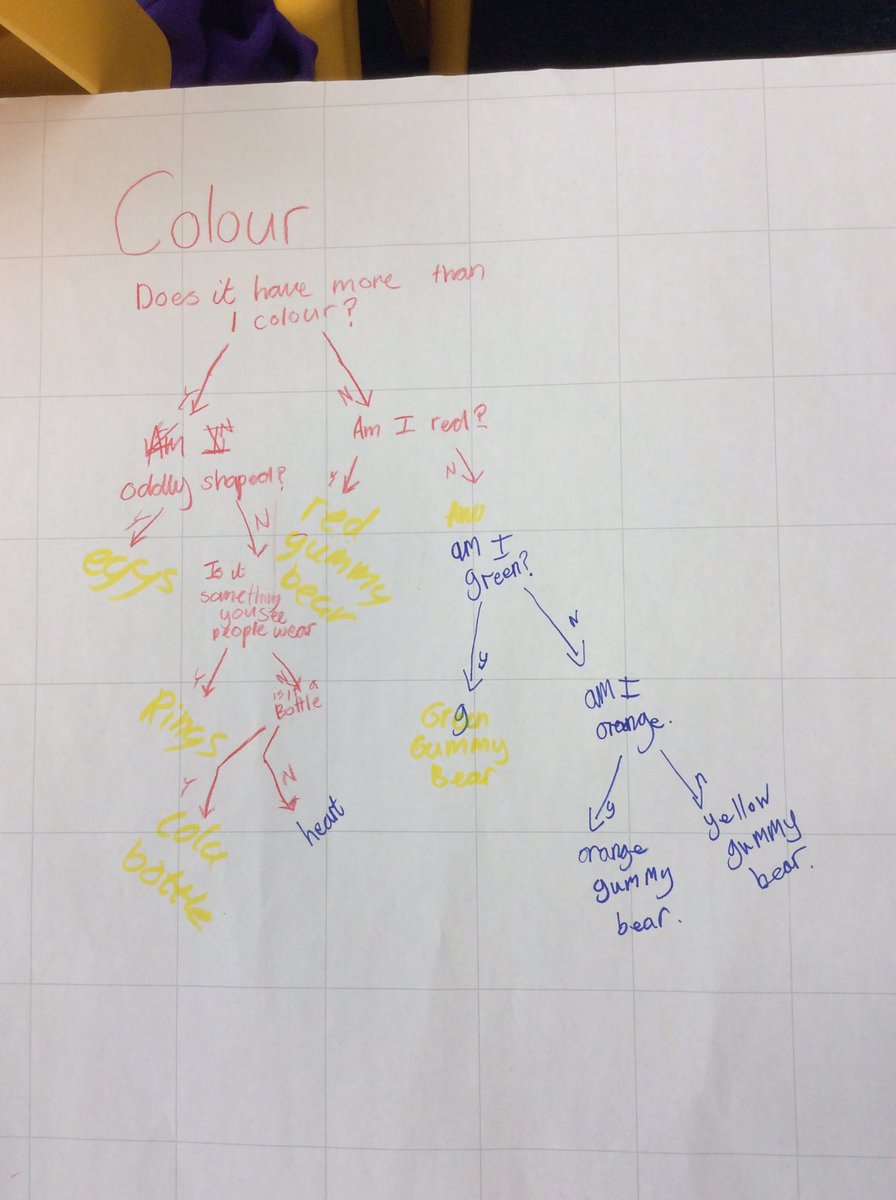 Colour
Does it have more than
1 colour?
Y
N
Am I
N
oddly shaped?
Am I red?
Y
N
Y
N
eggs
red
gummy
bear
am I
green?
Is it
something
you see
people wear
Y
N
y
N
Rings
is it a
Bottle
g
Green
Gummy
Bear
am I
orange.
Y
N
y
n
cola
bottle
heart
orange
gummy
bear.
yellow
gummy
bear.